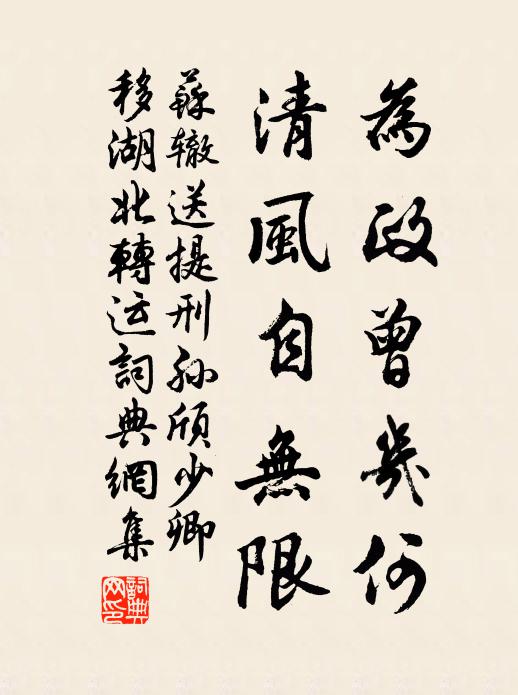 為政曾幾何
清風自無限
蘇轍送提刑孫頎少卿
移湖北轉运詞典網集
詞典网印